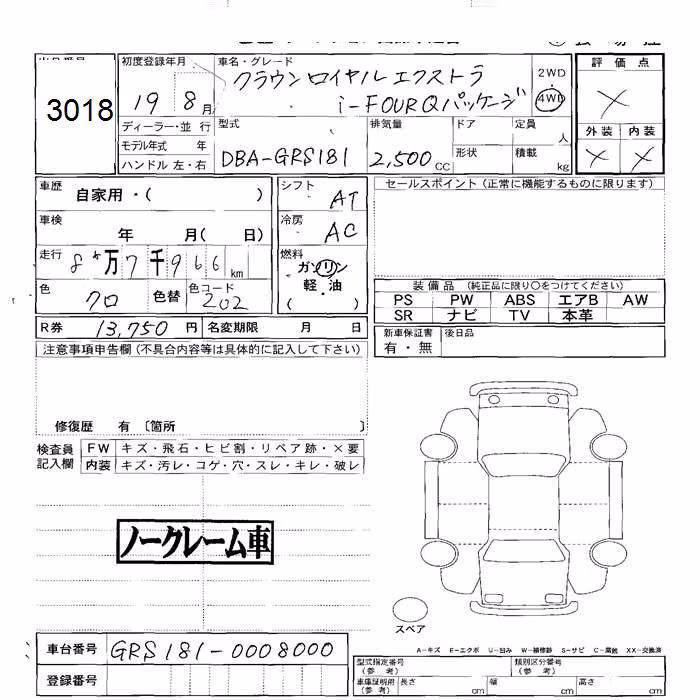 初度登録年月
車名・グレード
評価点
3018
19 8月
クラウンロイヤルエクストラ
i-FOUR Qパッケージ
2WD
4WD
外装 内装
ディーラー・並行
モデル年式 年
ハンドル 左・右
型式
DBA-GRS181
排気量
2,500CC
ドア
定員 人
形状
積載 kg
車歴 自家用・( )
シフト AT
セールスポイント (正常に機能するものに限ります)
車検 年 月( 日)
冷房 AC
走行 8万7千966km
燃料
ガソリン
軽・油
( )
色 クロ 色替 色コード 202
装備品 (純正品に限り○をつけてください)
PS PW ABS エアB AW
SR ナビ TV 本革
R券 13,750円 名変期限 月 日
新車保証書
有・無
後日品
注意事項申告欄 (不具合内容等は具体的に記入して下さい)
修復歴 有 〔箇所 〕
検査員
記入欄
FW キズ・飛石・ヒビ割・リペア跡・×要
内装 キズ・汚レ・コゲ・穴・スレ・キレ・破レ
ノークレーム車
スペア
A-キズ E-エクボ U-凹み W-補修跡 S-サビ C-腐蝕 XX-交換済
車台番号 GRS181-0008000
登録番号
型式指定番号
(参考)
類別区分番号
(参考)
車庫証明用
(参考)
長さ cm 幅 cm 高さ cm